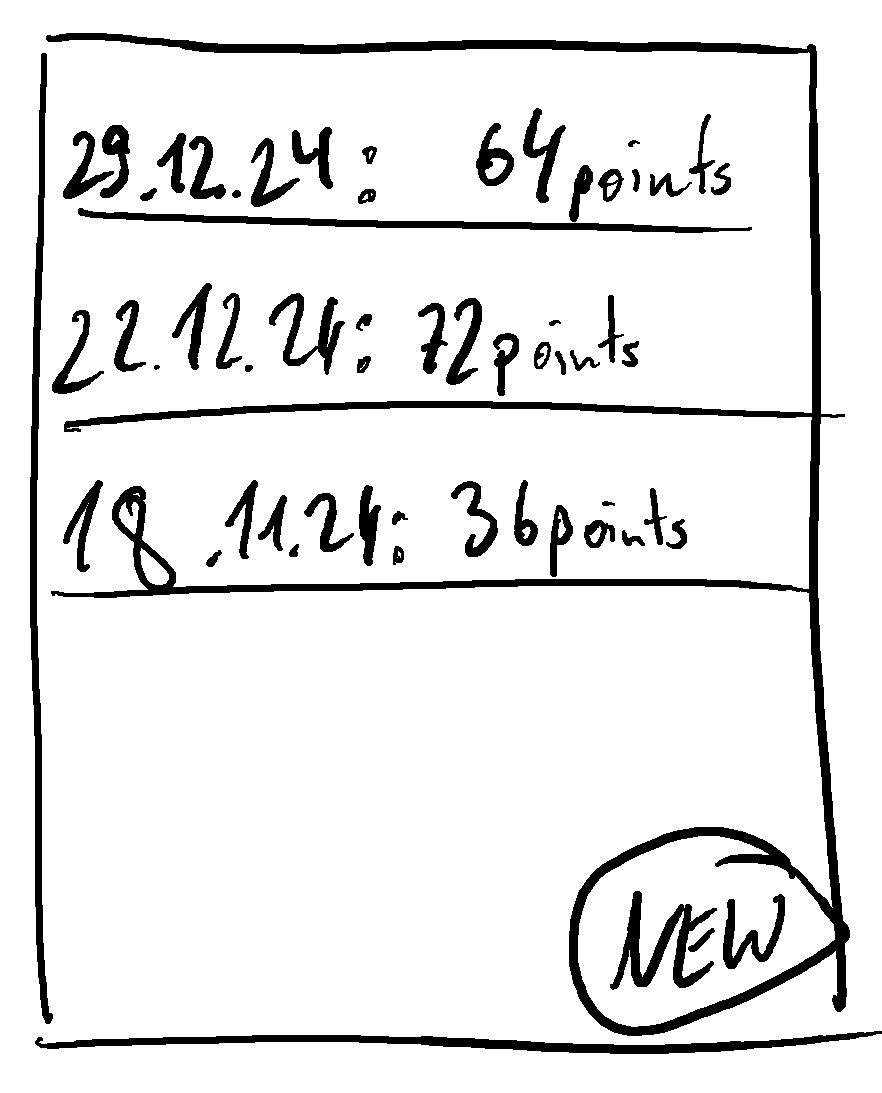 29.12.24: 64 points
22.12.24: 72 points
18.11.24: 36 points
NEW